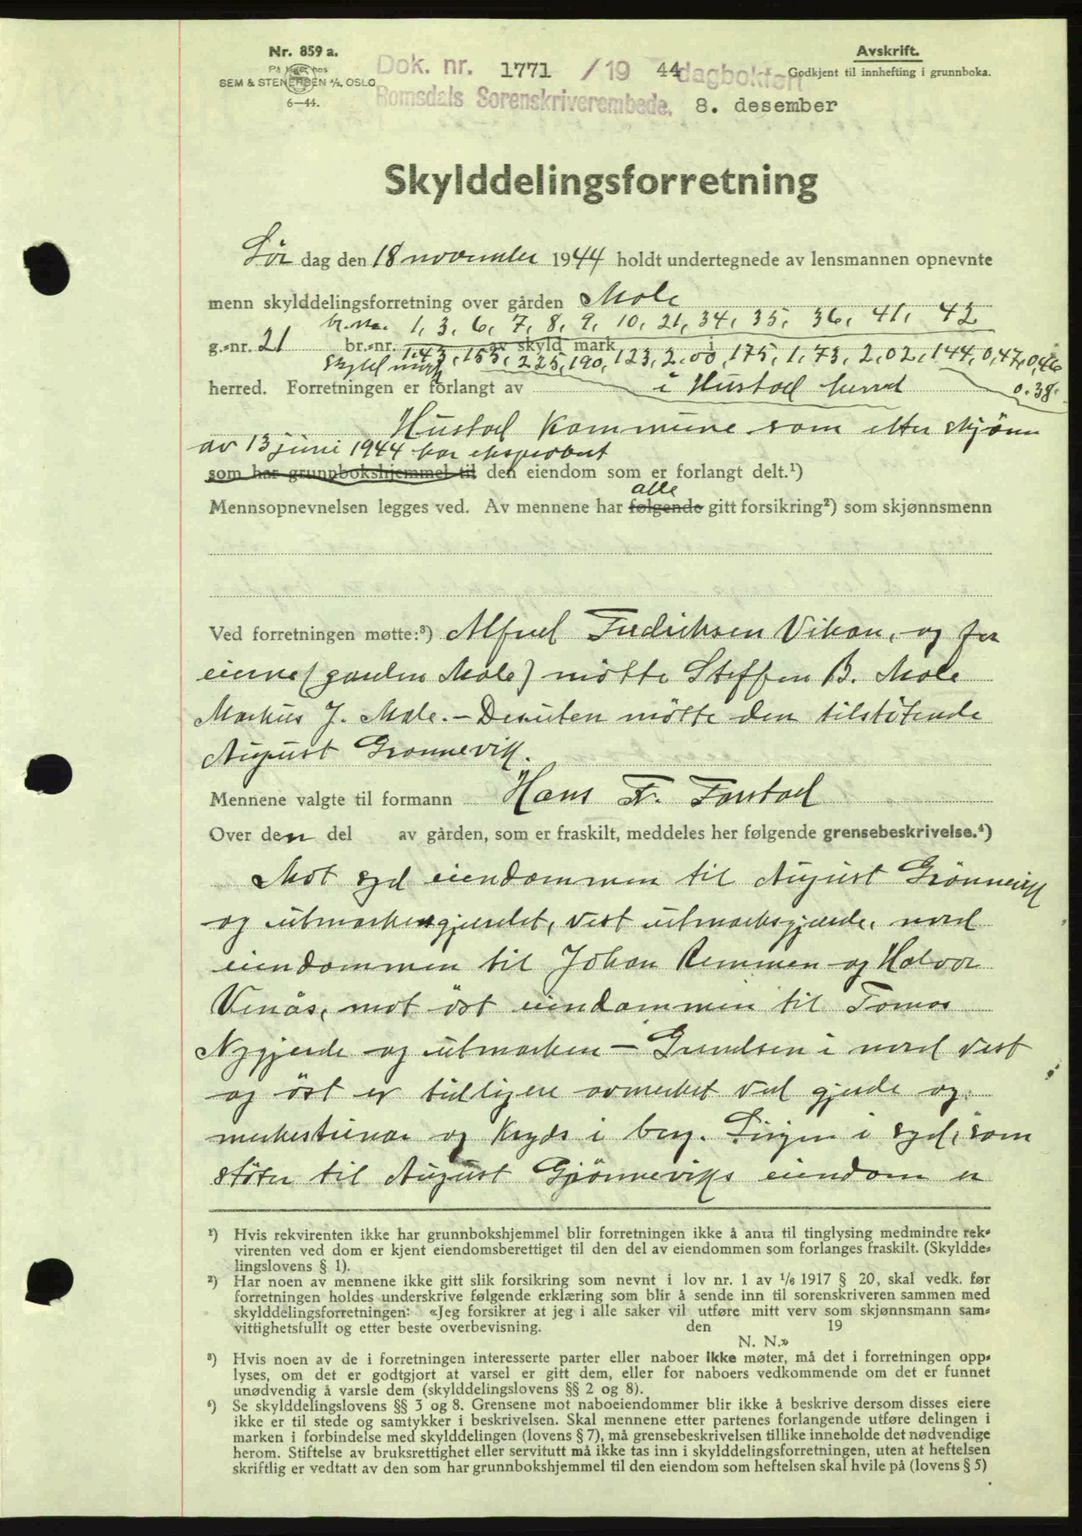 Nr. 859 a.
På lager hos
SEM & STENERSEN A/S, OSLO
6—44.
Dok. nr. 1771 /19 44 dagboken
Romsdals Sorenskriverembede. 8. desember
Avskrift.
Godkjent til innhefting i grunnboka.
Skylddelingsforretning
Lör dag den 18 november 1944 holdt undertegnede av lensmannen opnevnte
menn skylddelingsforretning over gården Male
br.no. 1, 3, 6, 7, 8, 9, 10, 21, 34, 35, 36, 41, 42
g.-nr. 21 br.-nr. av skyld mark i
Skyld mark 1,43, 155, 225, 190, 123, 2,00, 175, 1,73, 2,02, 144, 0,47, 0,46
0.38
herred. Forretningen er forlangt av i Hustad herred
Hustad kommune som etter skjönn
av 13 juni 1944 har ekspropiert
som har grunnbokshjemmel til den eiendom som er forlangt delt.¹)
alle
Mennsopnevnelsen legges ved. Av mennene har følgende gitt forsikring²) som skjønnsmenn
Ved forretningen møtte:³) Alfred Fredriksen Vikan, og for
eierne (garden Male) mötte Steffen B. Male
Markus J. Male. – Desuten mötte den tilstötende
August Grønnevik.
Mennene valgte til formann Hans Fr. Farstad
Over den del av gården, som er fraskilt, meddeles her følgende grensebeskrivelse.⁴)
Mot syd eiendommen til August Grönnevik
og utmarksgjerdet, vest utmarksgjerde, nord
eiendommen til Johan Remmen og Halvor
Venås, mot öst eiendommen til Tomas
Nygjerde og utmarken – Grendsen i nord vest
og öst er tidligere avmerket ved gjerde og
merkesteinar og kryds i berg. Linjen i syd, som
stöter til August Grönneviks eiendom er
¹) Hvis rekvirenten ikke har grunnbokshjemmel blir forretningen ikke å anta til tinglysing medmindre rek-
virenten ved dom er kjent eiendomsberettiget til den del av eiendommen som forlanges fraskilt. (Skyldde-
lingslovens § 1).
²) Har noen av mennene ikke gitt slik forsikring som nevnt i lov nr. 1 av 1/6 1917 § 20, skal vedk. før
forretningen holdes underskrive følgende erklæring som blir å sende inn til sorenskriveren sammen med
skylddelingsforretningen: «Jeg forsikrer at jeg i alle saker vil utføre mitt verv som skjønnsmann sam-
vittighetsfullt og etter beste overbevisning. den 19
N. N.»
³) Hvis noen av de i forretningen interesserte parter eller naboer ikke møter, må det i forretningen opp-
lyses, om det er godtgjort at varsel er gitt dem, eller for naboers vedkommende om det er funnet
unødvendig å varsle dem (skylddelingslovens §§ 2 og 8).
⁴) Se skylddelingslovens §§ 3 og 8. Grensene mot naboeiendommer blir ikke å beskrive dersom disses eiere
ikke er til stede og samtykker i beskrivelsen. Skal mennene etter partenes forlangende utføre delingen i
marken i forbindelse med skylddelingen (lovens § 7), må grensebeskrivelsen tillike inneholde det nødvendige
herom. Stiftelse av bruksrettighet eller servitutt må ikke tas inn i skylddelingsforretningen, uten at heftelsen
skriftlig er vedtatt av den som har grunnbokshjemmel til den eiendom som heftelsen skal hvile på (lovens § 5)